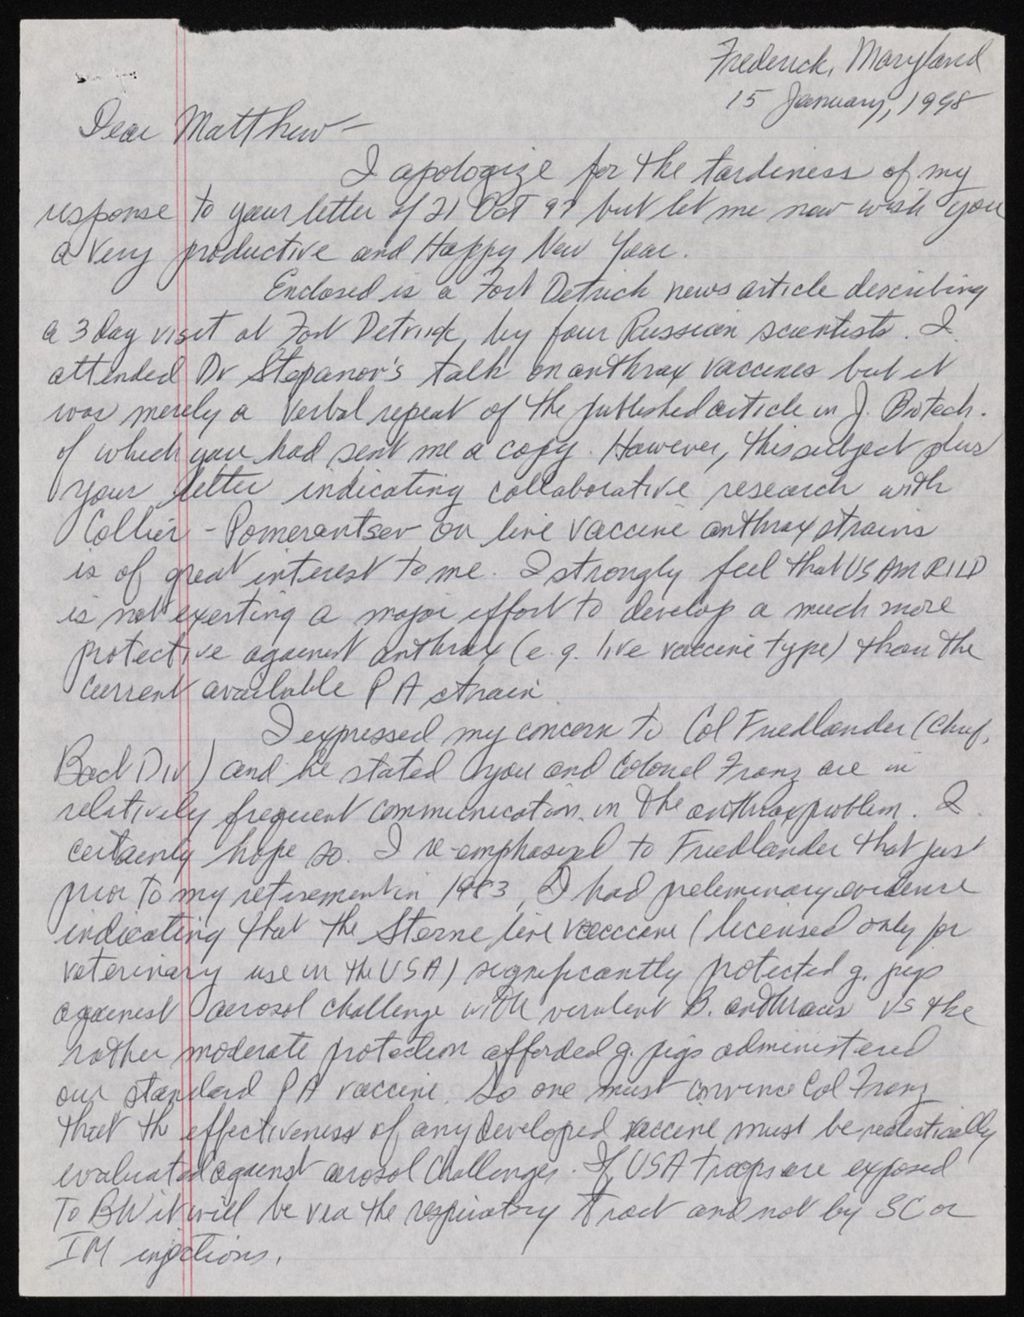 Frederick, Maryland
15 January, 1998
Dear Matthew -
I apologize for the tardiness of my
response to your letter of 21 Oct 97 but let me now wish you
a very productive and Happy New Year.
Enclosed is a Fort Detrick news article describing
a 3 day visit at Fort Detrick by four Russian scientists. I
attended Dr Stepanov's talk on anthrax vaccines but it
was merely a verbal repeat of the published article in J. Biotech.
of which you had sent me a copy. However, this subject plus
your letter indicating collaborative research with
Collier - Pomerantsev on live vaccine anthrax strains
is of great interest to me. I strongly feel that USAMRIID
is not exerting a major effort to develop a much more
protective against anthrax (e.g. live vaccine type) than the
current available PA strain
I expressed my concern to Col Friedlander (Chief,
Bact Div) and he stated you and Colonel Franz are in
relatively frequent communication in the anthrax problem. I
certainly hope so. I re-emphasized to Friedlander that just
prior to my retirement in 1983, I had preliminary evidence
indicating that the Sterne live vaccine (licensed only for
veterinary use in the USA) significantly protected g. pigs
against aerosol challenge with virulent B. anthracis vs the
rather moderate protection afforded g. pigs administered
our standard PA vaccine. So one must convince Col Franz
that the effectiveness of any developed vaccine must be realistically
evaluated against aerosol challenges. If USA troops are exposed
To BW it will be via the respiratory tract and not by SC or
IM injections.